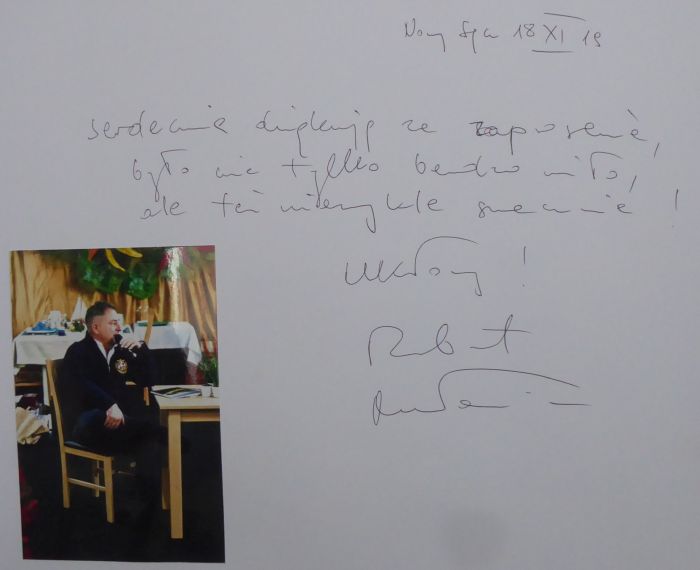 Nowy Sącz 18 XI 19
serdecznie dziękuję za zaproszenie,
było nie tylko bardzo miło,
ale też niezwykle smacznie!
Ukłony!
Robert